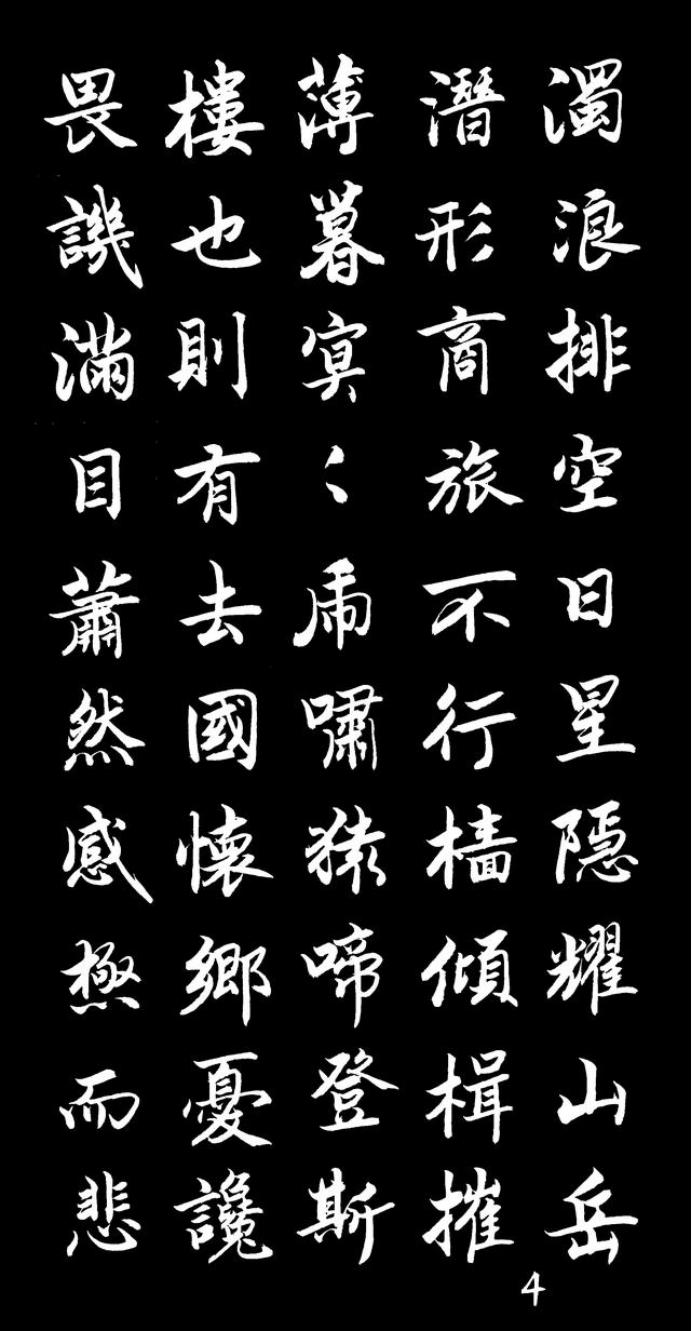 濁浪排空日星隱耀山岳
潛形商旅不行檣傾楫摧
薄暮冥〻虎嘯猿啼登斯
樓也則有去國懷鄉憂讒
畏譏滿目蕭然感極而悲
4